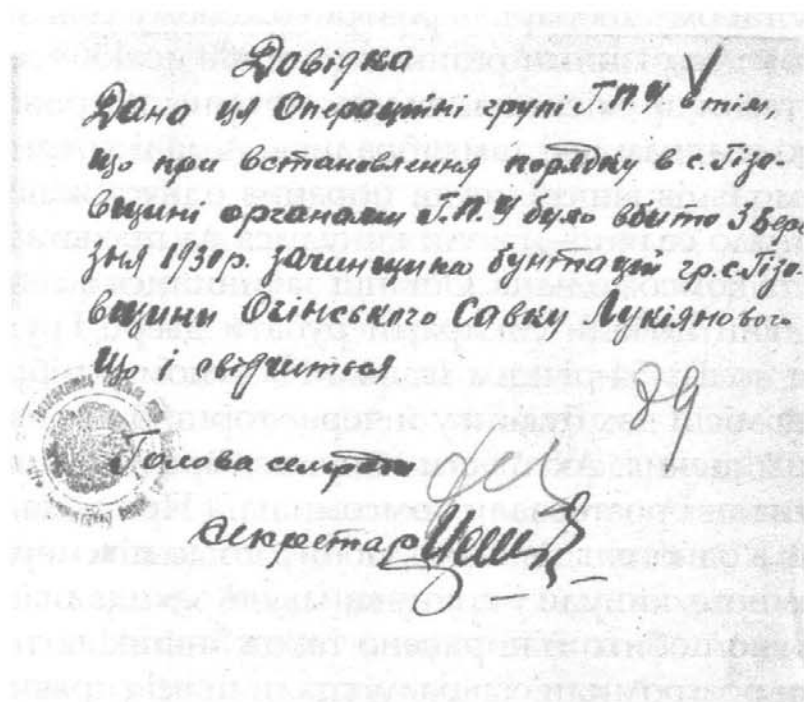 Довідка
Дано ця Операційні групі Г.П.У в тім,
що при встановлення порядку в с. Гізо-
вщині органами Г.П.У було вбито 3 бере
зня 1930 р. зачинщика бунтації гр. с. Гізо-
вщини Огінського Савку Лукіянового
що і свідчиться
Голова сельради
Секретар